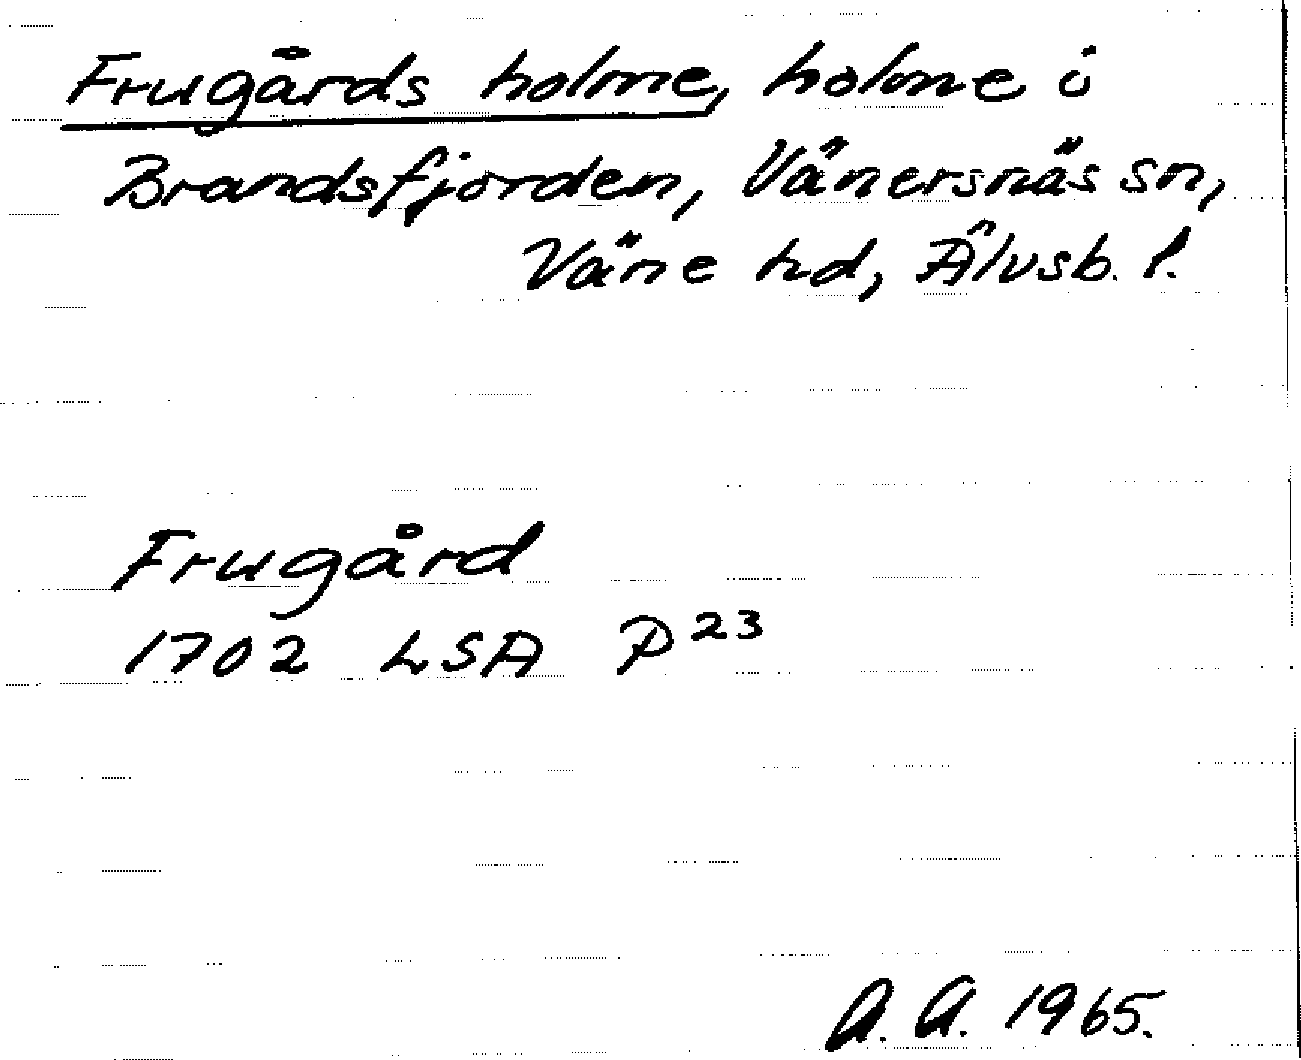 Frugårds holme, holme i
Brandsfjorden, Vänersnäs sn,
Väne hd, Älvsb. l.
Frugård
1702 LSA P²³
A. A. 1965.